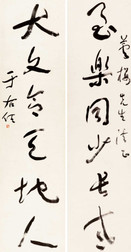 至樂同少長老
先生法正
大文天地人
于右任